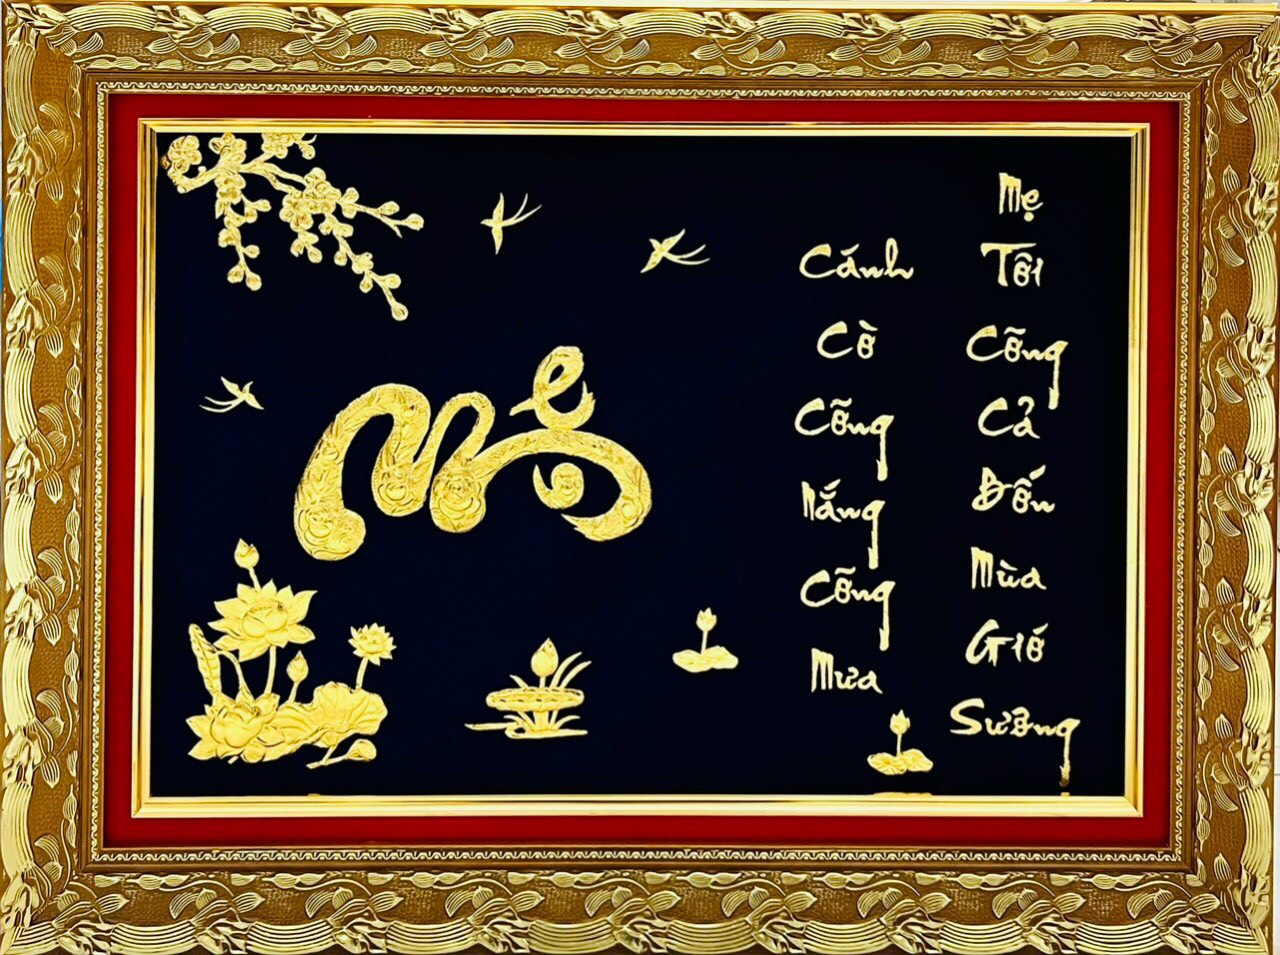 Mẹ
Cánh Cò Cõng Nắng Cõng Mưa
Mẹ Tôi Cõng Cả Đốn Mùa Gió Sương